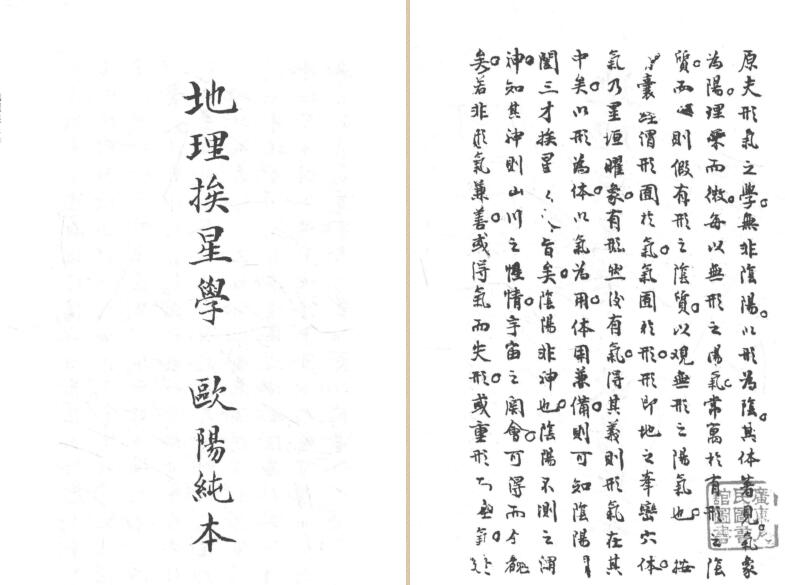 原夫形氣之學。無非陰陽。以形為陰。其体著見。氣象
為陽。理而微。每以無形之陽氣。常寓於有形之陰
質。而則假有形之陰質。以观無形之陽氣也。按
囊經謂形囿於氣。氣囿於形。形即地之峯巒穴体。
氣乃星垣曜象。有形然後有氣。得其義則形氣在其
中矣。以形為体。以氣為用。体用兼備。則可知陰陽
三才挨星旨矣。陰陽非神也。陰陽不測之謂
神。知其神則山川之性情。宇宙之関會。可得而
矣。若非形氣兼善。或得氣而失形。或重形氣
地理挨星學 歐陽純本